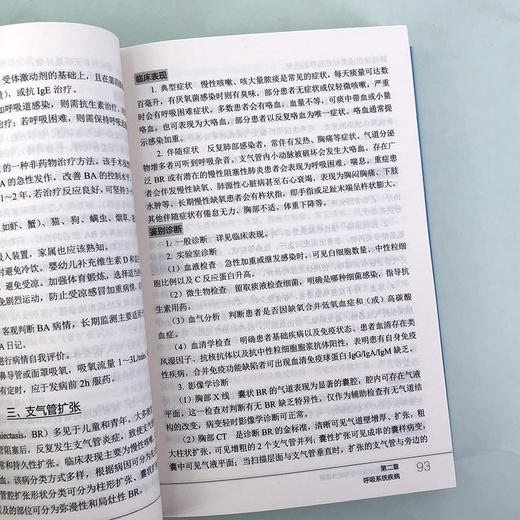 受体激动剂的基础上，且在第四
)，或抗 IgE 治疗。
如呼吸道感染，则需抗生素治疗。
治疗；若呼吸困难，则需保持呼吸道
的一种非药物治疗方法。该手术
A 的急性发作，改善 BA 的控制水
1～2 年，若治疗反应良好，可坚持 3～
如虾、蟹）、猫、狗、螨虫、烟草、
入装置，家属也应该熟知。
时避免冷饮。婴幼儿补充维生素 D 和
避免过度激动。加强体育锻炼，选择适当
免剧烈运动，防止受凉感冒加重病情。
客观判断 BA 病情，长期监测主要适于
A 日记。
进行病情自我评价。
鼻导管或面罩吸氧，吸氧流量 1～3L/min
有定时，应于发病前 2h 服药。
三、支气管扩张
nctasis，BR）多见于儿童和青年，大多
管阻塞后，反复发生支气管炎症，致使支气
常和持久性扩张。临床表现主要为慢性咳嗽
。该病分类方式多样，根据病因可分为
管腔扩张形状分类可分为柱形扩张、囊状扩
及的部位可分为弥漫性和局灶性 BR。
临床表现
1. 典型症状 慢性咳嗽、咳大量脓痰是常见的症状，每天痰量可达数
百毫升，有厌氧菌感染时则有臭味，部分患者无症状或仅轻微咳嗽，严重
时会有呼吸困难症状。多数患者会有咯血，血量不等，可痰中带血或小量
咯血，也可表现为大咯血，部分患者以反复咯血为唯一症状。咯血通常提
示感染加重。
2. 伴随症状 反复肺部感染者，常伴有发热、胸痛等症状。气道分泌
物增多者可听到呼吸杂音，支气管内小动脉被破坏会发生大咯血。存在广
泛 BR 或有潜在的慢性阻塞性肺炎患者会表现为呼吸困难、喘息。重症患
者会伴发慢性缺氧、肺源性心脏病甚至右心衰竭，表现为胸闷胸痛、下肢
水肿等。长期慢性缺氧患者会有杵状指，即手指或足趾末端呈杵状膨大。
其他伴随症状有倦怠无力、胸部不适、体重下降等。
鉴别诊断
1. 一般诊断 详见临床表现。
2. 实验室诊断
（1）血液检查 急性加重或继发感染时，可见白细胞数量、中性粒细
胞比例以及 C 反应蛋白升高。
（2）微生物检查 留取痰液检查细菌，明确是哪种细菌感染，指导抗
生素用药。
（3）血气分析 判断患者是否因缺氧合并低氧血症和（或）高碳酸
血症。
（4）血清学检查 明确患者基础疾病以及免疫状态。患者血清存在类
风湿因子、抗核抗体以及抗中性粒细胞胞浆抗体阳性，表明患有自身免疫
性疾病，合并免疫功能缺陷者可出现血清免疫球蛋白 IgG/IgA/IgM 缺乏。
3. 影像学诊断
（1）胸部 X 线 囊状 BR 的气道表现为显著的囊腔，腔内可存在气液
平面。这一检查对判断有无 BR 缺乏特异性，仅作为辅助检查有无气道结
构的改变，病变轻时影像学诊断可正常。
（2）胸部 CT 是诊断 BR 的金标准，清晰可见气道壁增厚、扩张，粗
柱状扩张，可见增粗的 2 个支气管并列；囊性扩张可见成串的囊样病变，
囊中可见气液平面；当扫描层面与支气管垂直时，扩张的支气管与旁边的
第二章
呼吸系统疾病
93